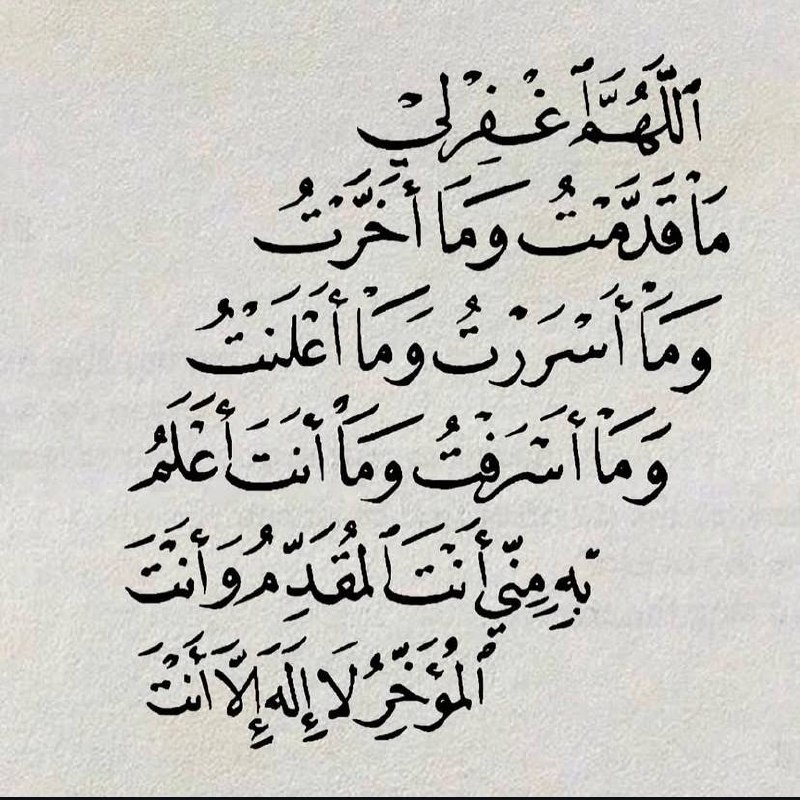 ٱللَّهُمَّ ٱغْفِرْ لِي
مَا قَدَّمْتُ وَمَا أَخَّرْتُ
وَمَا أَسْرَرْتُ وَمَا أَعْلَنْتُ
وَمَا أَسْرَفْتُ وَمَا أَنتَ أَعْلَمُ
بِهِ مِنِّي أَنْتَ ٱلمُقَدِّمُ وَأَنْتَ
ٱلمُؤَخِّرُ لَا إِلَهَ إِلَّا أَنْتَ